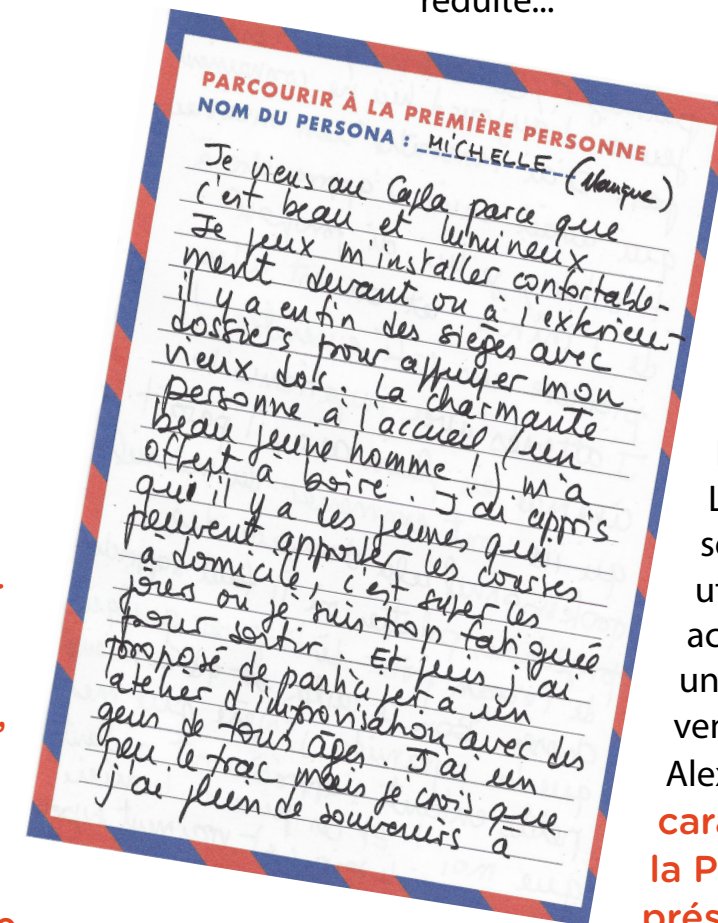 réduite...
PARCOURIR À LA PREMIÈRE PERSONNE
NOM DU PERSONA : MICHELLE (Manque)
Je viens au Cayla parce que
c'est beau et lumineux
Je peux m'installer confortable-
ment devant ou à l'exterieur
il y a enfin des sièges avec
dossiers pour appuyer mon
vieux dos. La charmante
personne à l'accueil (un
beau jeune homme !) m'a
offert à boire. J'ai appris
qu'il y a les jeunes qui
peuvent apporter les courses
à domicile, c'est super les
jours où je suis trop fatiguée
pour sortir. Et puis j'ai
proposé de participer à un
atelier d'improvisation avec des
gens de tous âges. J'ai un
peu le trac mais je crois que
j'ai plein de souvenirs à
L
se
ut
ac
un
ver
Alex
cara
la P
prés